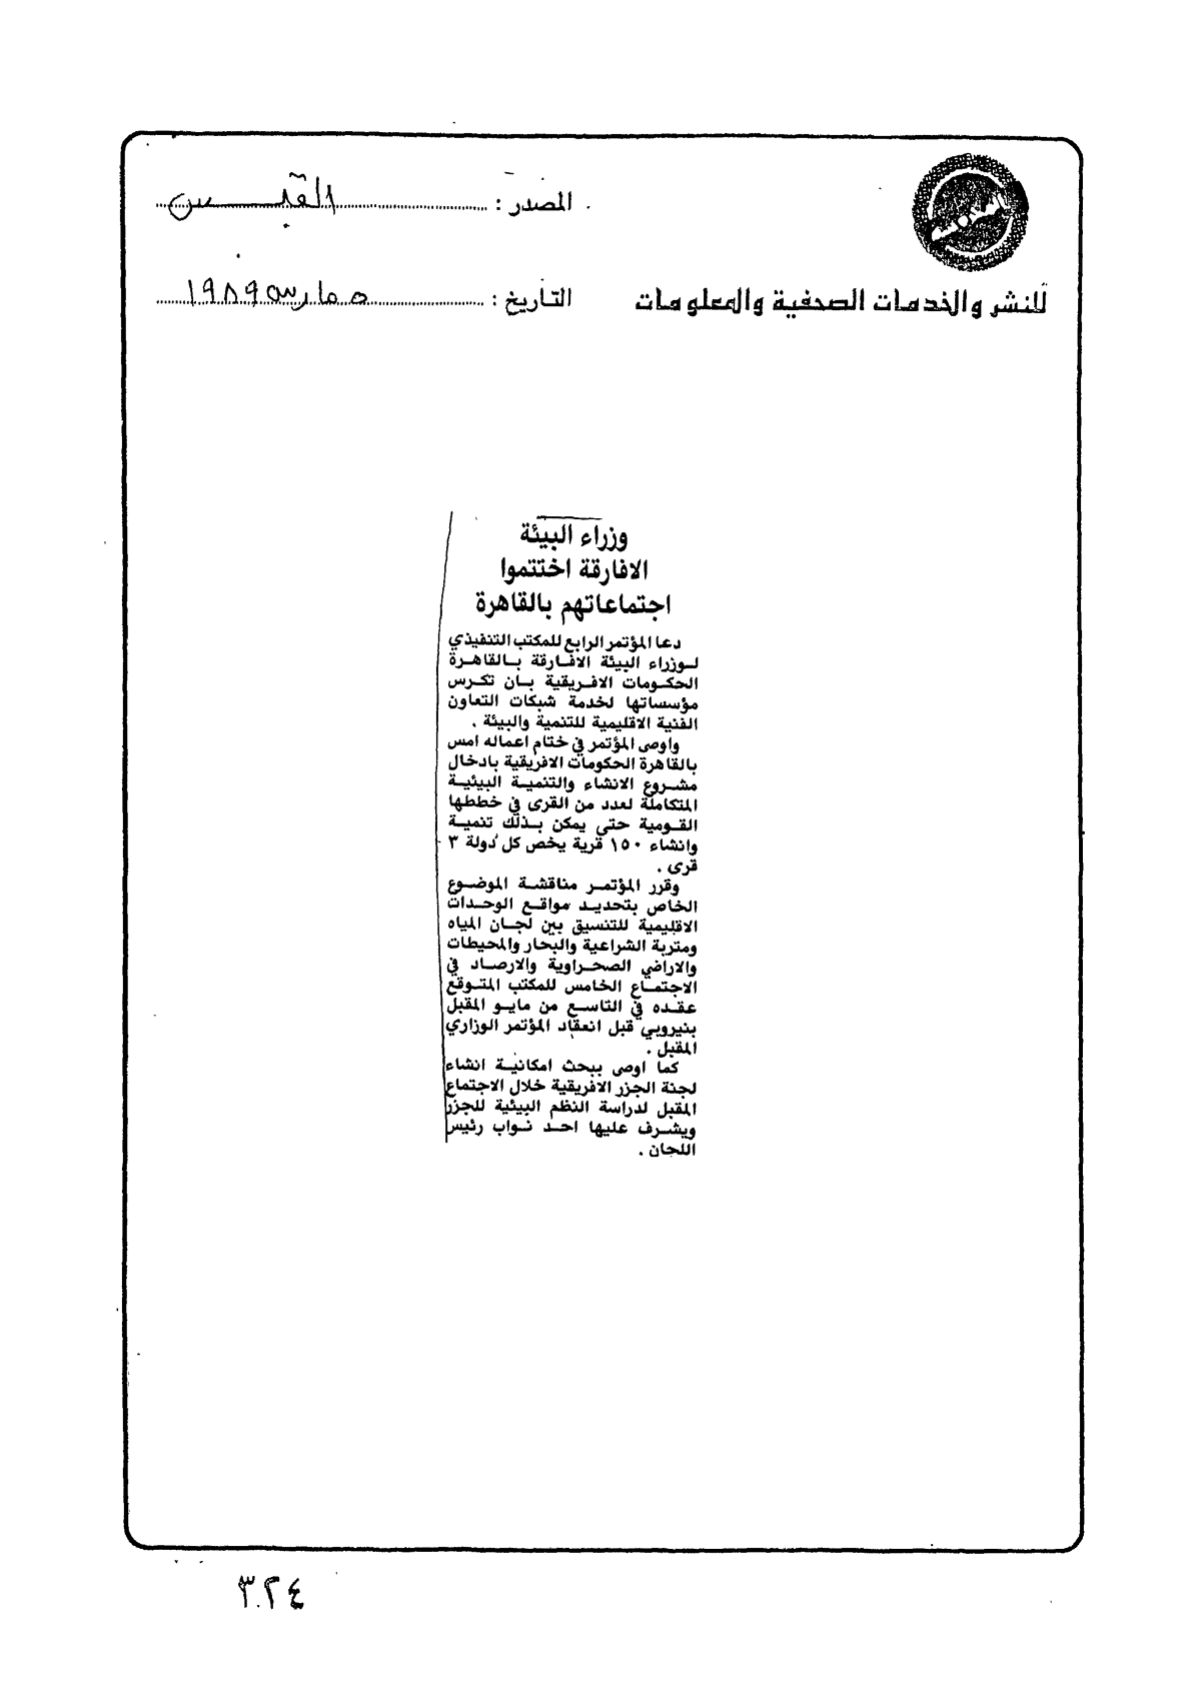 المصدر : القبس
للنشر والخدمات الصحفية والمعلومات
التاريخ : ٥ مارس ١٩٨٩
وزراء البيئة
الافارقة اختتموا
اجتماعاتهم بالقاهرة
دعا المؤتمر الرابع للمكتب التنفيذي
لوزراء البيئة الافارقة بالقاهرة
الحكومات الافريقية بان تكرس
مؤسساتها لخدمة شبكات التعاون
الفنية الاقليمية للتنمية والبيئة .
واوصى المؤتمر في ختام اعماله امس
بالقاهرة الحكومات الافريقية بادخال
مشروع الانشاء والتنمية البيئية
المتكاملة لعدد من القرى في خططها
القومية حتى يمكن بذلك تنمية
وانشاء ١٥٠ قرية يخص كل دولة ٣
قرى .
وقرر المؤتمر مناقشة الموضوع
الخاص بتحديد مواقع الوحدات
الاقليمية للتنسيق بين لجان المياه
ومتربة الشراعية والبحار والمحيطات
والاراضي الصحراوية والارصاد في
الاجتماع الخامس للمكتب المتوقع
عقده في التاسع من مايو المقبل
بنيروبي قبل انعقاد المؤتمر الوزاري
المقبل .
كما اوصى ببحث امكانية انشاء
لجنة الجزر الافريقية خلال الاجتماع
المقبل لدراسة النظم البيئية للجزر
ويشرف عليها احد نواب رئيس
اللجان .
٣٠٢٤